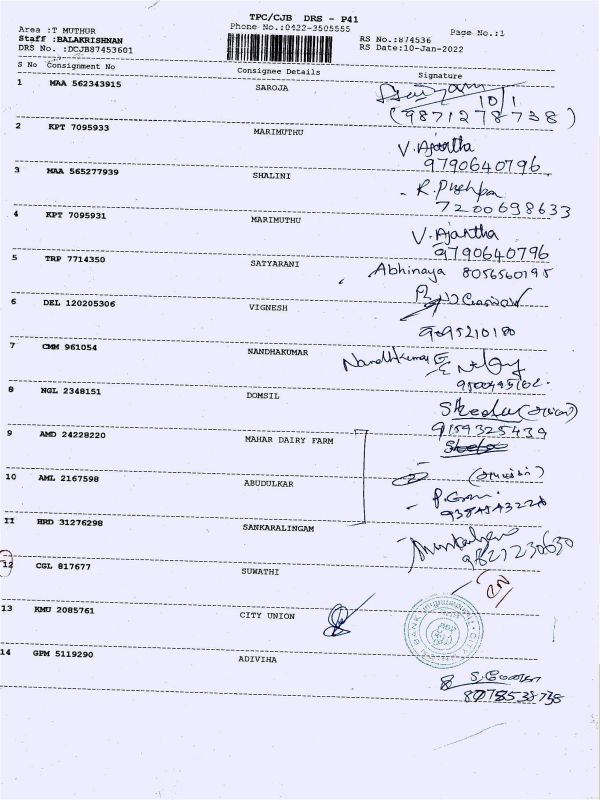 TPC/CJB DRS - P41
Area :T MUTHUR
Phone No.:0422-3505555
Page No.:1
Staff :BALAKRISHNAN
RS No.:874536
DRS No. :DCJB87453601
RS Date:10-Jan-2022
S No Consignment No Consignee Details Signature
1 MAA 562343915 SAROJA
10/1
(9871278738)
2 KPT 7095933 MARIMUTHU V. Ajantha
9790640796
3 MAA 565277939 SHALINI R. Pushpa
7200698633
4 KPT 7095931 MARIMUTHU V. Ajantha
9790640796
5 TRP 7714350 SATYARANI Abhinaya 8056560195
6 DEL 120205306 VIGNESH
9095210180
7 CMM 961054 NANDHAKUMAR Nandhkumar
8 NGL 2348151 DOMSIL
9159325439
9 AMD 24228220 MAHAR DAIRY FARM
10 AML 2167598 ABUDULKAR
11 HRD 31276298 SANKARALINGAM
9821230630
12 CGL 817677 SUWATHI
13 KMU 2085761 CITY UNION
14 GPM 5119290 ADIVIHA